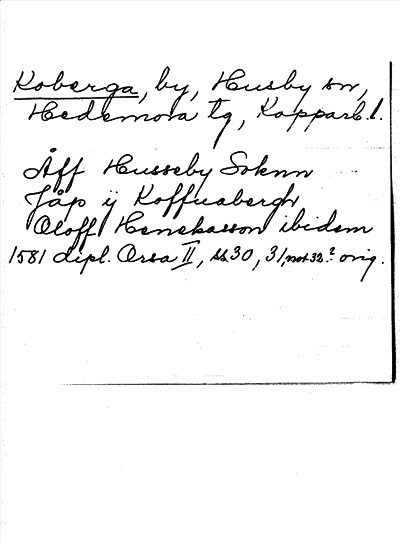 Koberga, by, Husby sn,
Hedemora tg, Kopparb. l.
Åff Husseby Soknn
Jåp ÿ Koffuabergh
Oloff Henekasson ibidem
1581 dipl. Orsa II, ss 30, 31, not 32? orig.